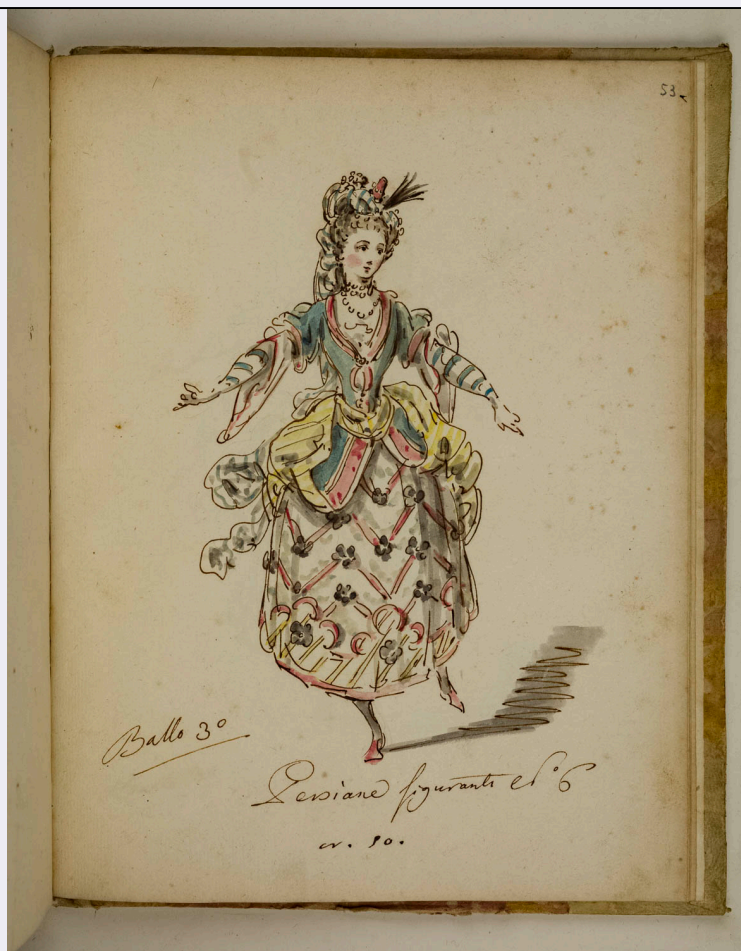 53.
Ballo 3º
Persiane figuranti Nº 6